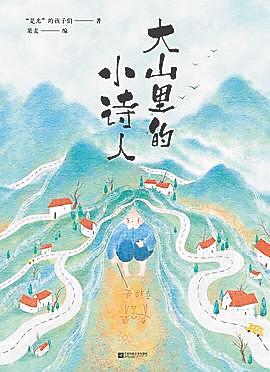 “是光”的孩子们——著
果麦——编
大山里的
小诗人